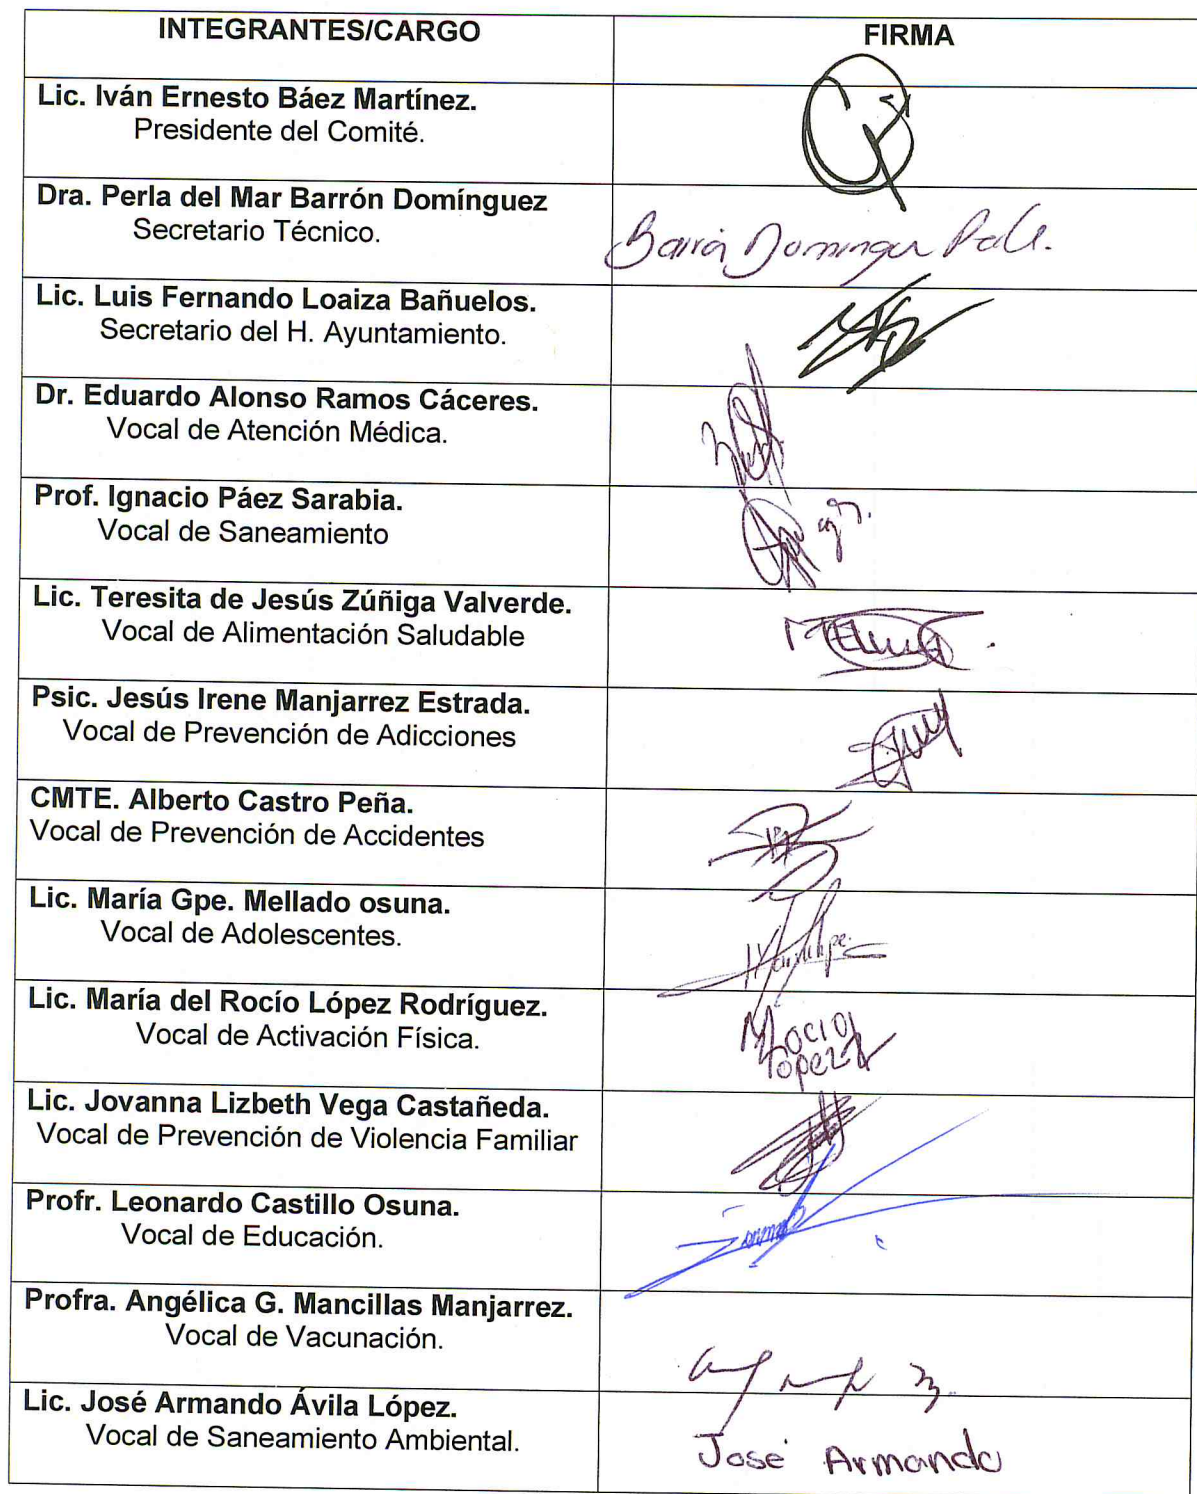 INTEGRANTES/CARGO
FIRMA
Lic. Iván Ernesto Báez Martínez.
Presidente del Comité.
Dra. Perla del Mar Barrón Domínguez
Secretario Técnico.
Barrón Domínguez
Lic. Luis Fernando Loaiza Bañuelos.
Secretario del H. Ayuntamiento.
Dr. Eduardo Alonso Ramos Cáceres.
Vocal de Atención Médica.
Prof. Ignacio Páez Sarabia.
Vocal de Saneamiento
Lic. Teresita de Jesús Zúñiga Valverde.
Vocal de Alimentación Saludable
Psic. Jesús Irene Manjarrez Estrada.
Vocal de Prevención de Adicciones
CMTE. Alberto Castro Peña.
Vocal de Prevención de Accidentes
Lic. María Gpe. Mellado osuna.
Vocal de Adolescentes.
Lic. María del Rocío López Rodríguez.
Vocal de Activación Física.
Rocio
Lopez
Lic. Jovanna Lizbeth Vega Castañeda.
Vocal de Prevención de Violencia Familiar
Profr. Leonardo Castillo Osuna.
Vocal de Educación.
Profra. Angélica G. Mancillas Manjarrez.
Vocal de Vacunación.
Lic. José Armando Ávila López.
Vocal de Saneamiento Ambiental.
José Armando